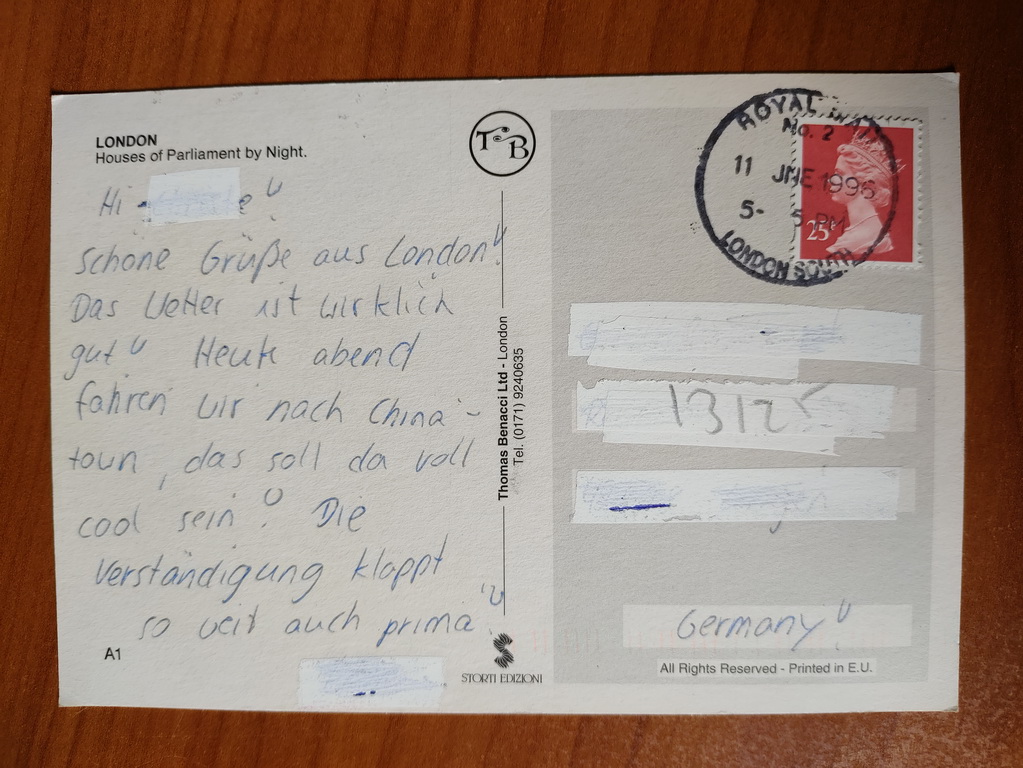 LONDON
Houses of Parliament by Night.
Hi
schöne Grüße aus London!
Das Wetter ist wirklich
gut! Heute abend
fahren wir nach China-
town, das soll da voll
cool sein! Die
Verständigung klappt
so weit auch prima!
A1
TB
Thomas Benacci Ltd - London
Tel. (0171) 9240635
STORTI EDIZIONI
ROYAL MAIL
No. 2
11 JNE 1996
5- 5 PM
LONDON SOUTH
25
13125
Germany!
All Rights Reserved - Printed in E.U.